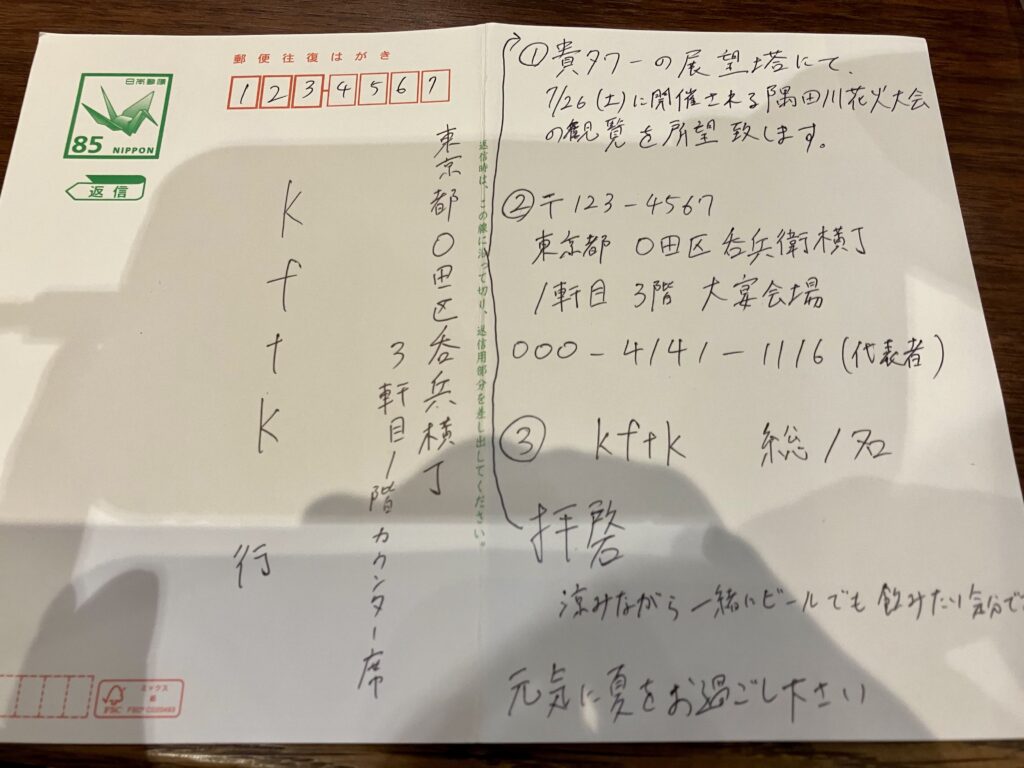 郵便往復はがき
123-4567
日本郵便
85 NIPPON
返信
東京都〇田区呑兵横丁
3軒目1階カウンター席
kftk
行
返信時は、この線に沿って切り、返信用部分を差し出してください。
ミックス
紙
FSC
①貴タワーの展望塔にて、
7/26(土)に開催される隅田川花火大会
の観覧を所望致します。
②〒123-4567
東京都 〇田区 呑兵衛横丁
1軒目 3階 大宴会場
000-4141-1116(代表者)
③ kftk 総1名
拝啓
涼みながら一緒にビールでも飲みたい気分で
元気に夏をお過ごし下さい